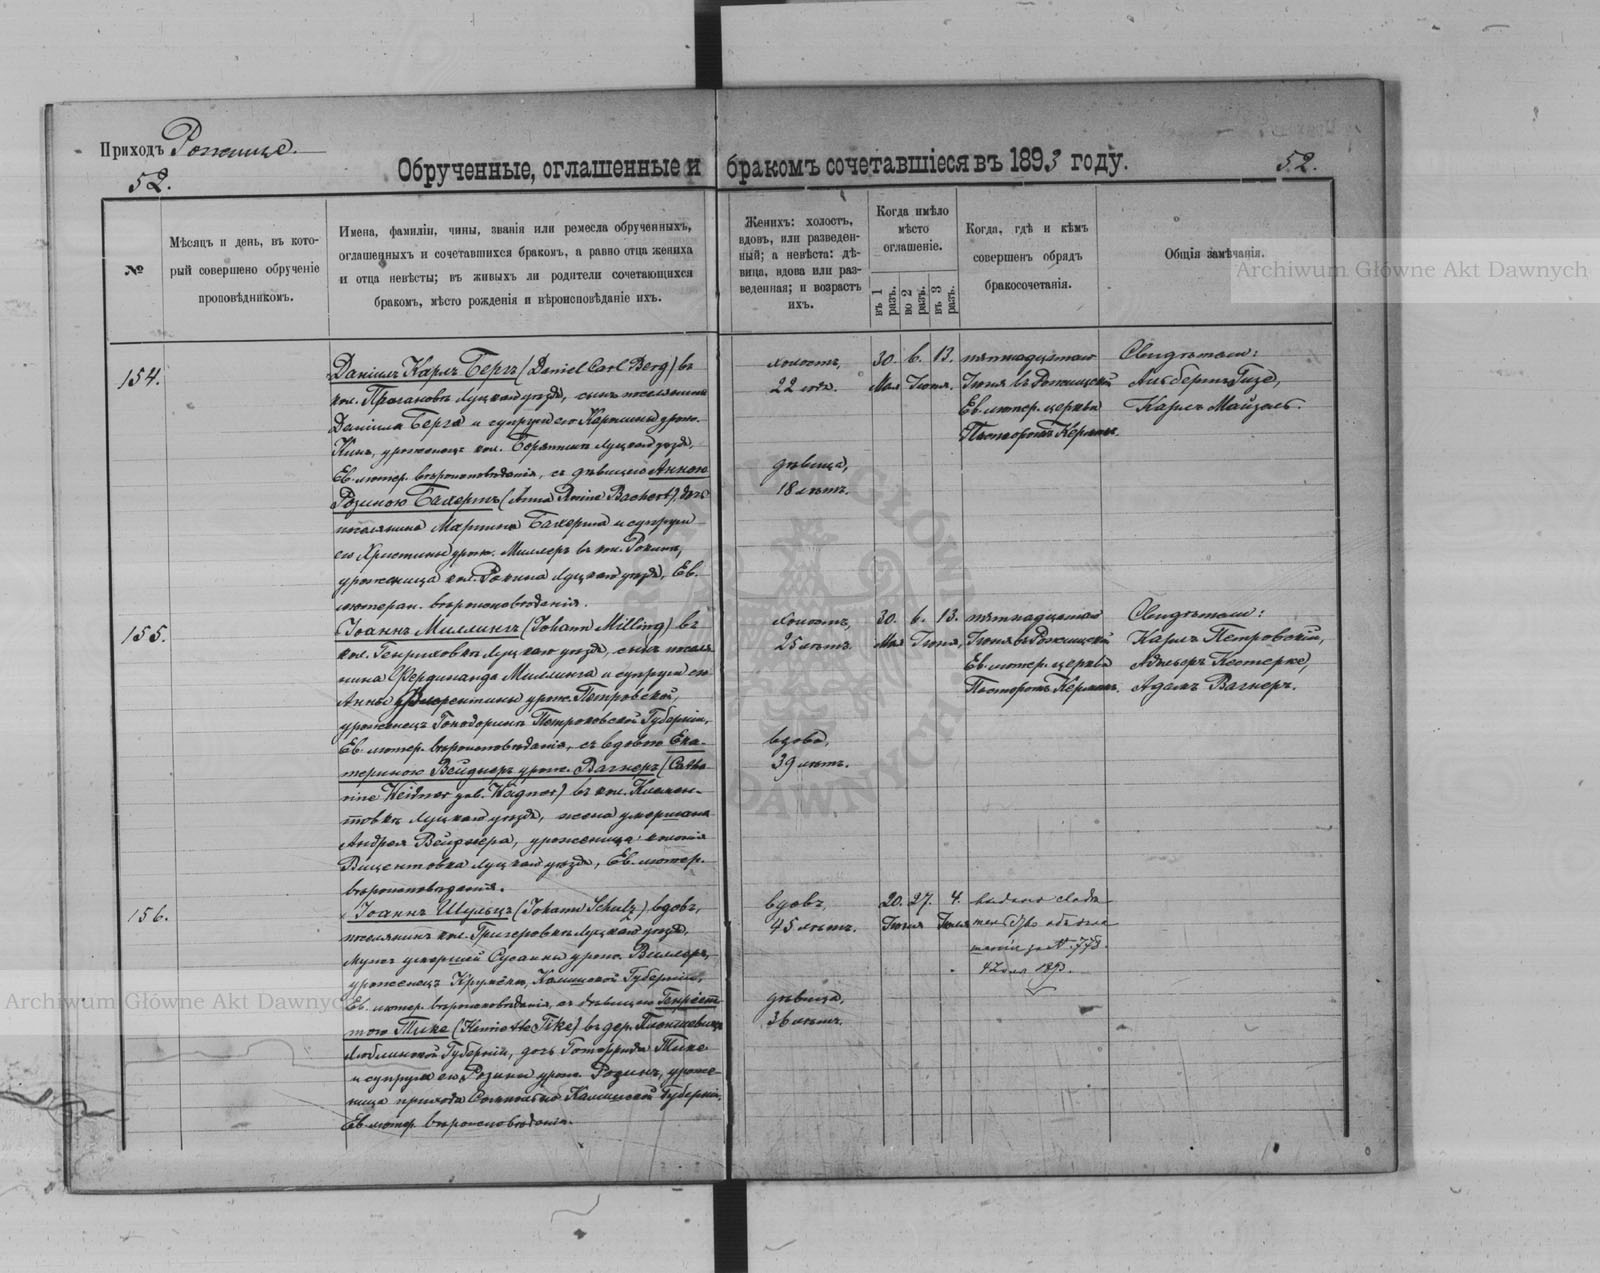 Приходъ Рожище.
52.
Обрученные, оглашенные и бракомъ сочетавшіеся въ 1893 году.
52.
№
Мѣсяцъ и день, въ кото-
рый совершено обрученіе
проповѣдникомъ.
Имена, фамиліи, чины, званія или ремесла обрученныхъ,
оглашенныхъ и сочетавшихся бракомъ, а равно отца жениха
и отца невѣсты; въ живыхъ ли родители сочетающихся
бракомъ, мѣсто рожденія и вѣроисповѣданіе ихъ.
Женихъ: холостъ,
вдовъ, или разведен-
ный; а невѣста: дѣ-
вица, вдова или раз-
веденная; и возрастъ
ихъ.
Когда имѣло
мѣсто
оглашеніе.
въ 1 разъ.
во 2 разъ.
въ 3 разъ.
Когда, гдѣ и кѣмъ
совершенъ обрядъ
бракосочетанія.
Общія замѣчанія.
Archiwum Główne Akt Dawnych
154.
Даніилъ Карлъ Бергъ (Daniel Carl Berg) въ
кол. Луцкаго уѣзда, сынъ поселянина
Даніила Берга и супруги его Каролины урож.
уроженецъ кол. Луцкаго уѣзда,
Ев. лютер. вѣроисповѣданія, съ дѣвицею Анною
Розиною Бахертъ (Anna Rosine Bachert), дочь
поселянина Мартина Бахерта и супруги
его Христины урож. Миллеръ въ кол. Рокини,
уроженица кол. Рокини Луцкаго уѣзда, Ев.
лютеран. вѣроисповѣданія.
холостъ,
22 года.
дѣвица,
18 лѣтъ.
30. 6. 13.
Мая Іюня.
пятнадцатаго
Іюня въ Рожищской
Ев. лютер. церкви
Пасторомъ Керлемъ.
Свидѣтели:
Альбертъ Гизе,
Карлъ Майзель.
155.
Іоаннъ Миллингъ (Johann Milling) въ
кол. Генриховкѣ Луцкаго уѣзда, сынъ поселя-
нина Фердинанда Миллинга и супруги его
Анны Флорентины урож. Петровской,
уроженецъ Петроковской Губерніи,
Ев. лютер. вѣроисповѣданія, съ вдовою Ека-
териною Вейднеръ урож. Вагнеръ (Catha-
rine Weidner geb. Wagner) въ кол. Клемен-
товкѣ Луцкаго уѣзда, жена умершаго
Андрея Вейднера, уроженица колоніи
Вицентовка Луцкаго уѣзда, Ев. лютер.
вѣроисповѣданія.
холостъ,
25 лѣтъ.
вдова,
39 лѣтъ.
30. 6. 13.
Мая Іюня,
пятнадцатаго
Іюня въ Рожищской
Ев. лютер. церкви
Пасторомъ Керлемъ.
Свидѣтели:
Карлъ Петровскій,
Адамъ Вагнеръ.
156.
Іоаннъ Шульцъ (Johann Schulz) вдовъ,
поселянинъ кол. Луцкаго уѣзда,
мужъ умершей Сусанны урож. Виллеръ,
уроженецъ Калишской Губерніи,
Ев. лютер. вѣроисповѣданія, съ дѣвицею Генріет-
тою Тике (Henriette Tike) въ дер.
Люблинской Губерніи, дочь Готфрида Тике
и супруги его Розины урож. уроже-
ница прихода Калишской Губерніи,
Ев. лютер. вѣроисповѣданія.
вдовъ,
45 лѣтъ.
дѣвица,
36 лѣтъ.
20. 27. 4.
Іюня Іюля
выдано свидѣ-
тельство объ огла-
шеніи за № 778.
4 Іюля 1893.
Archiwum Główne Akt Dawnych